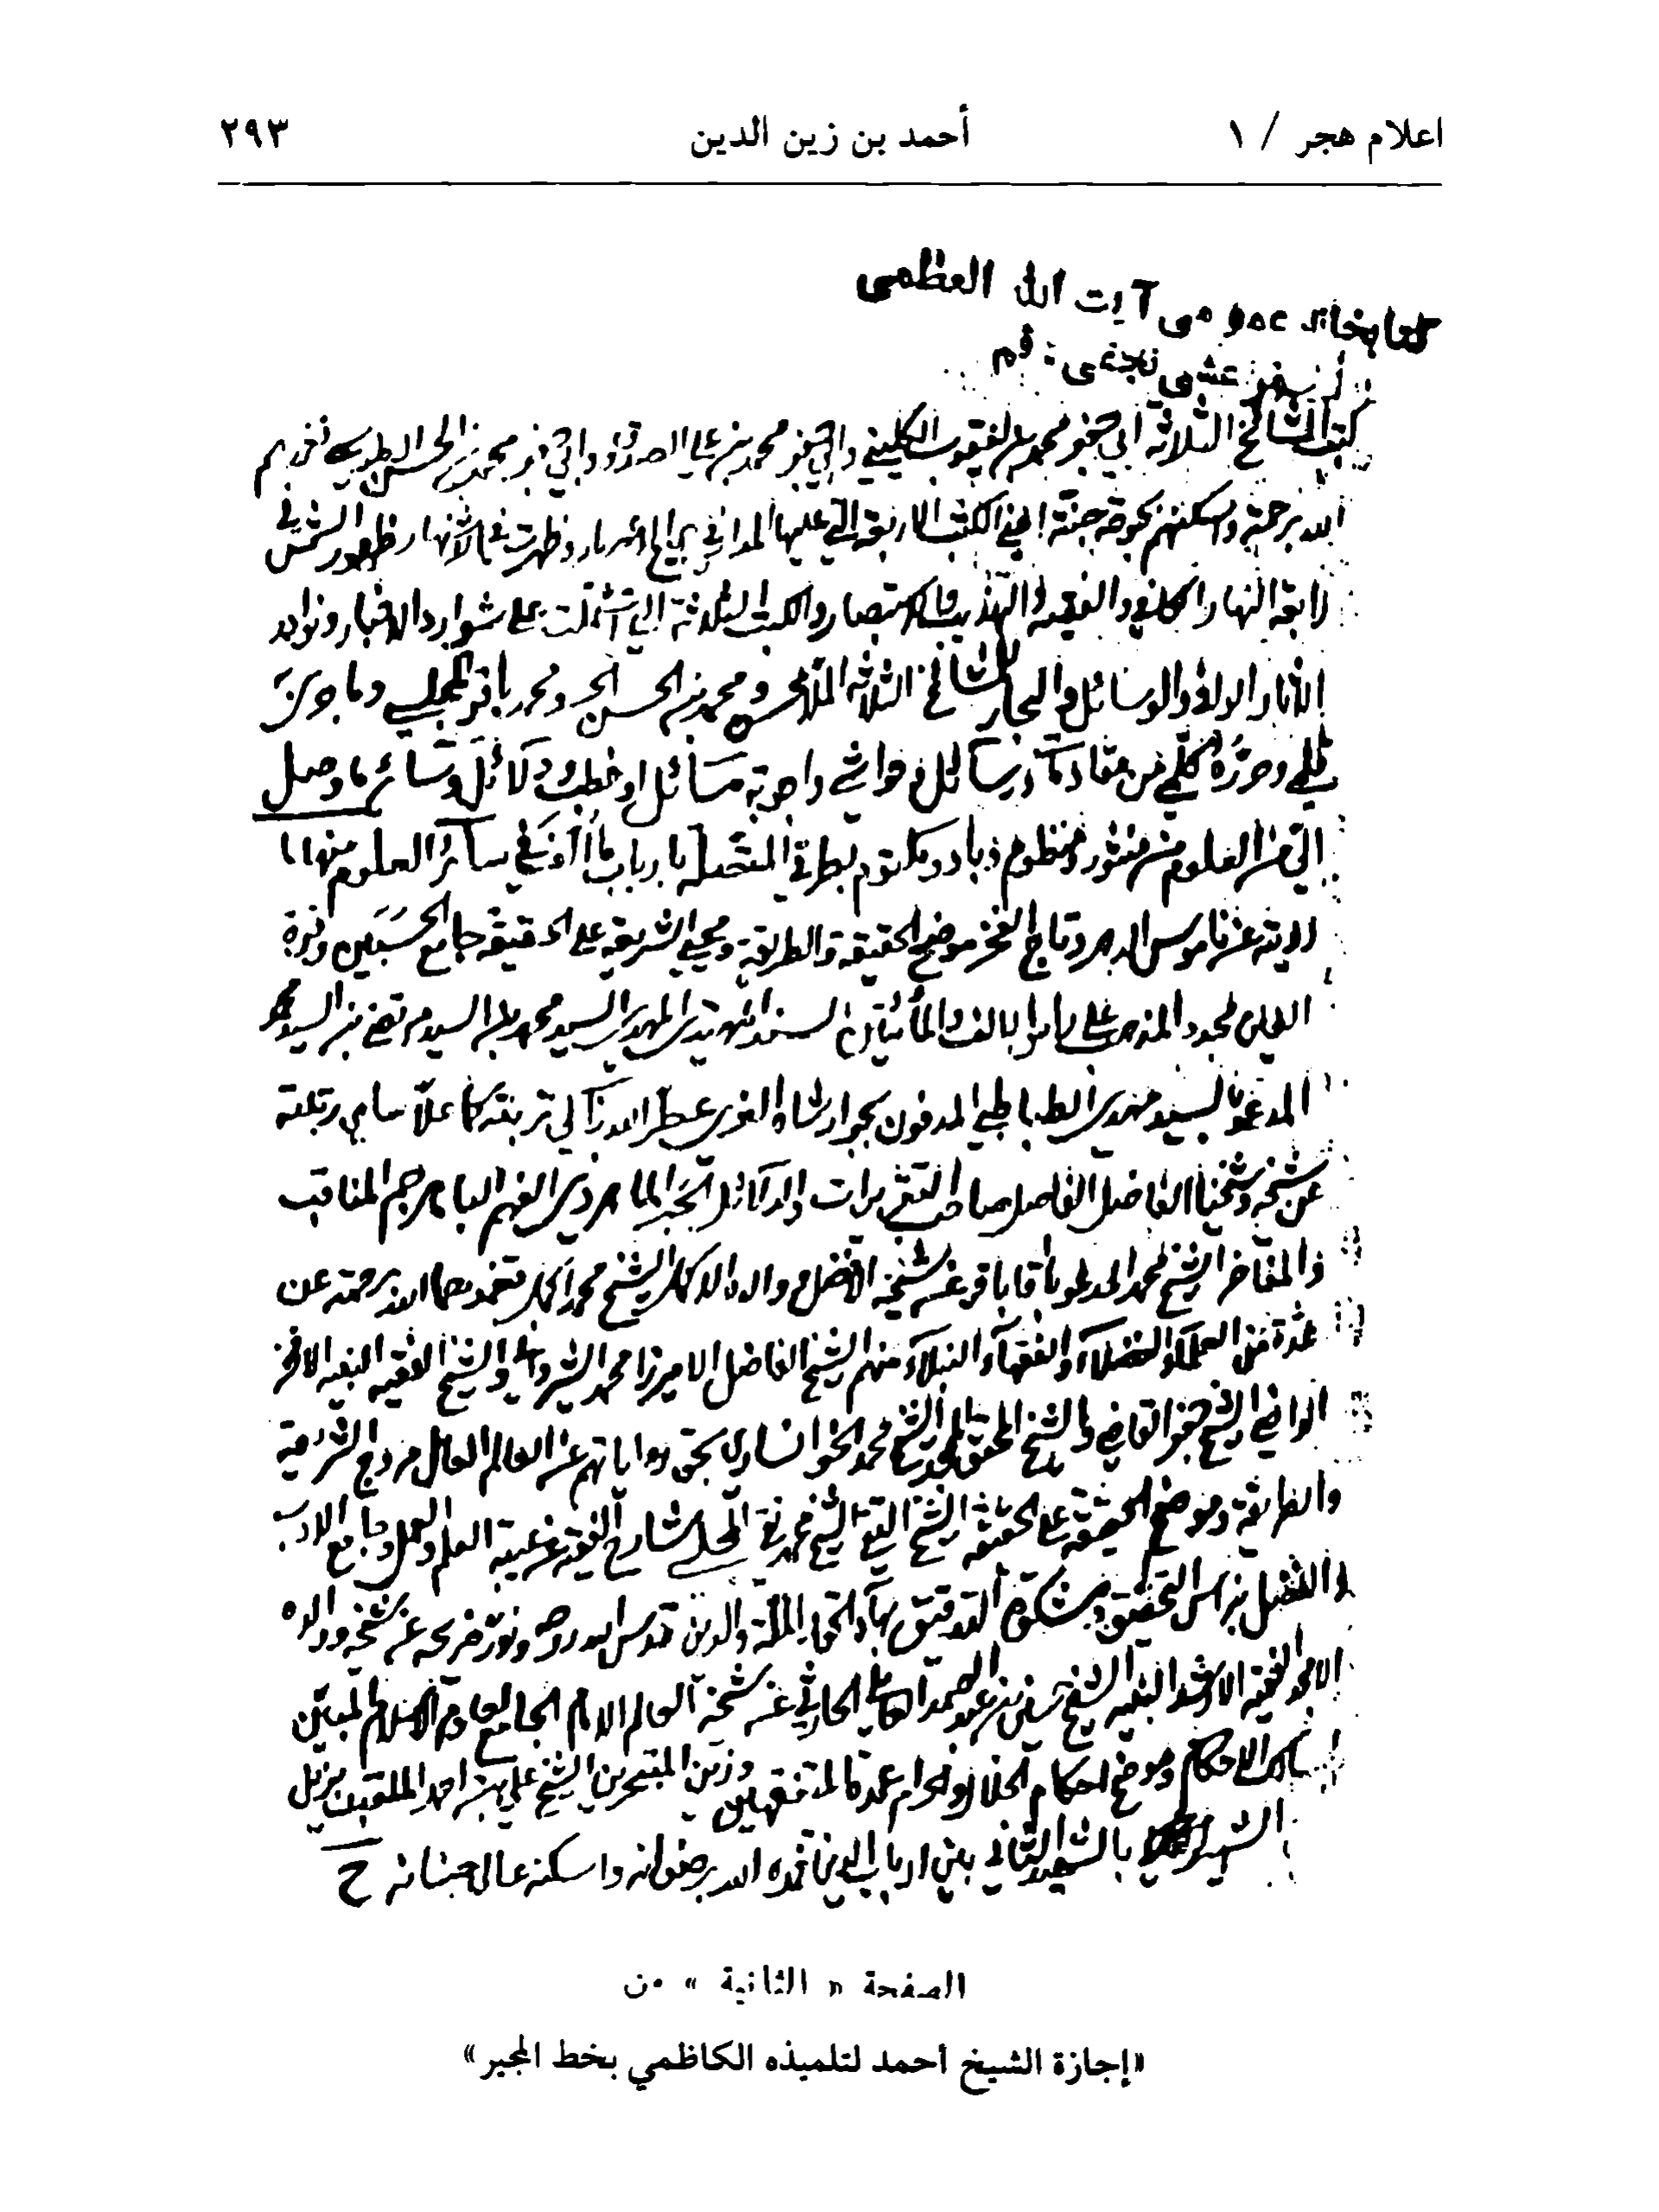 اعلام هجر / ١
أحمد بن زين الدين
٢٩٣
كتابخانه عمومى آيت الله العظمى
مرعشى نجفى - قم
كتب المشائخ الثلاثة ابي جعفر محمد بن يعقوب الكليني وابي جعفر محمد بن علي الصدوق وابي جعفر محمد بن الحسن الطوسي تغمدهم
الله برحمته واسكنهم بحبوحة جنته اعني الكتب الاربعة التي عليها المدار في جميع الاعصار وظهرت في الاشتهار ظهور الشمس في
رابعة النهار الكافي والفقيه والتهذيب والاستبصار والكتب الثلاثة التي اشتملت على شوارد الاخبار ونوادر
الاثار الوافي والوسائل والبحار للمشائخ الثلاثة الملا محسن ومحمد بن الحسن الحر ومحمد باقر المجلسي وما جرى به
قلمي وحرره كلمي من رسائل وحواشي واجوبة مسائل او خطب ودلائل وسائر ما وصل
الي من العلوم من منثور ومنظوم وباد ومكتوم بطرقي المتصلة باربابها في سائر العلوم منها ما
رويته عن قاموس الدهر وتاج الفخر موضح الحقيقة والطريقة ومحيي الشريعة على الحقيقة جامع الحسبين وقرة
العين مجدد المذهب على راس الالف والمأتين السند المهتدي المهدي السيد محمد بن السيد مرتضى بن السيد محمد
المدعو بالسيد مهدي الطباطبائي المدفون بجوار شاه الغري عطر الله تعالى تربته كما علا سامي رتبته
عن شيخه وشيخنا الفاضل الفاصل صاحب التقريرات والدلائل الحبر الماهر ذي الفهم الباهر جم المناقب
والمفاخر الشيخ محمد المدعو باقا باقر عن شيخه الافضل والده الاكمل الشيخ محمد اكمل تغمدهما الله برحمته عن
عدة من العلماء والفضلاء والفقهاء والنبلاء منهم الشيخ الفاضل الاميرزا محمد الشرواني والشيخ الفقيه النبيه الافخر
الواضي الشيخ جعفر القاضي والشيخ المحقق الشيخ محمد الخوانساري بحق رواياتهم عن العالم العامل مروج الشريعة
والطريقة وموضح الحقيقة على الحقيقة الشيخ التقي الشيخ محمد تقي المجلسي شارح الفقيه عن عيبة العلم والعمل وجامع الادب
والفضل نبراس التحقيق ومشكوة التدقيق بهاء الملة والدين قدس الله روحه ونور ضريحه عن شيخه ووالده
الامجد الفقيه الارشد النبيه الشيخ حسين بن عبد الصمد العاملي الحارثي عن شيخه العالم الامام الجامع لعلوم الاسلام المبين
مسالك الاحكام وموضح احكام الحلال والحرام عمدة المتفقهين وزين المتبحرين الشيخ علي بن احمد الملقب بزين
الشهير بالشهيد الثاني بين ارباب الدين تغمده الله برضوانه واسكنه عالي جنانه ح
الصفحة « الثانية » من
«إجازة الشيخ أحمد لتلميذه الكاظمي بخط المجيز»